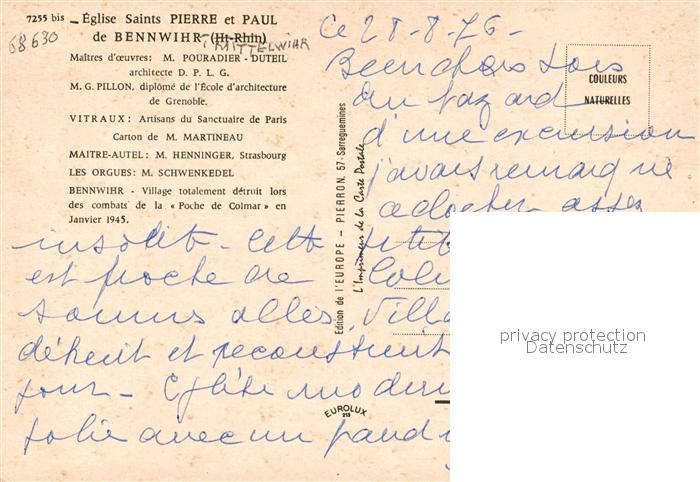 7255 bis — Église Saints PIERRE et PAUL
de BENNWIHR (Ht-Rhin)
68630
MITTELWIHR
Maîtres d'œuvres: M. POURADIER - DUTEIL
architecte D. P. L. G.
M. G. PILLON, diplômé de l'École d'architecture
de Grenoble.
VITRAUX: Artisans du Sanctuaire de Paris
Carton de M. MARTINEAU
MAITRE-AUTEL: M. HENNINGER, Strasbourg
LES ORGUES: M. SCHWENKEDEL
BENNWIHR - Village totalement détruit lors
des combats de la « Poche de Colmar » en
Janvier 1945.
Edition de l'EUROPE - PIERRON, 57-Sarreguemines
L'Imprimeur de la Carte Postale
COULEURS
NATURELLES
Ce 28-8-76-
Bien chers tous
Au hazard
d'une excursion
j'avais remarqué
ce clocher assez
insolite - Cette
est proche de
sommes allés. Villa
détruit et reconstruit
jour - Eglise modern
jolie avec un grand
EUROLUX
213
privacy protection
Datenschutz